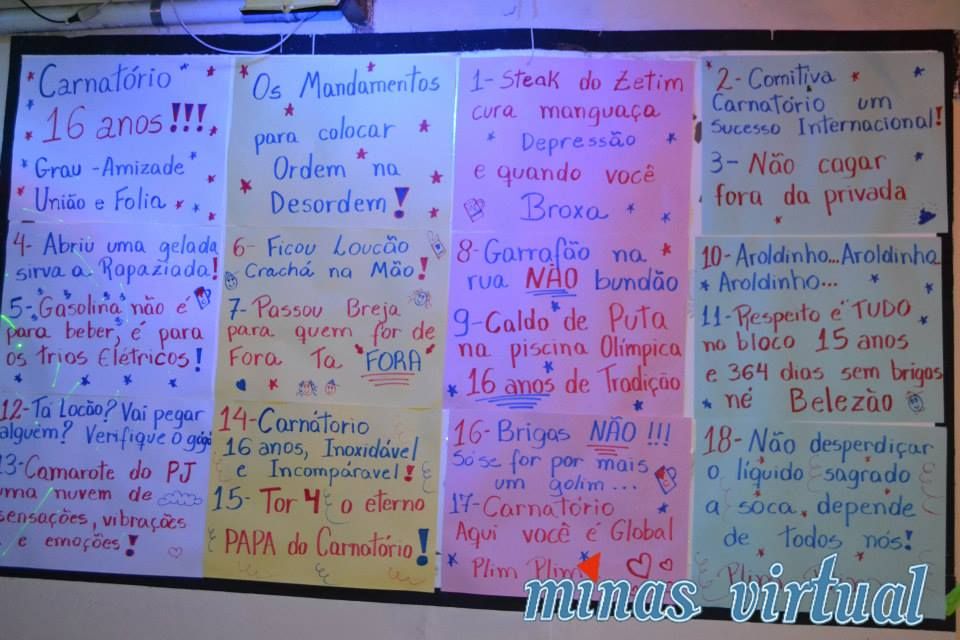 Carnatório
16 anos!!!
Grau - Amizade
União e Folia
Os Mandamentos
para colocar
Ordem na
Desordem!
1- Steak do Zetim
cura manguaça
Depressão
e quando você
Broxa
2- Comitiva
Carnatório um
sucesso Internacional!
3- Não cagar
fora da privada
4- Abriu uma gelada
sirva a Rapaziada!
5- Gasolina não é
para beber, é para
os trios Elétricos!
6- Ficou Loucão
Crachá na Mão!
7- Passou Breja
para quem for de
Fora Ta FORA
8- Garrafão na
rua NÃO bundão
9- Caldo de Puta
na piscina Olímpica
16 anos de Tradição
10- Aroldinho...Aroldinho
Aroldinho...
11- Respeito é TUDO
no bloco 15 anos
e 364 dias sem brigas
né Belezão
12- Tá Locão? Vai pegar
alguém? Verifique o gógó
13- Camarote do PJ
uma nuvem de
sensações, vibrações
e emoções!
14- Carnátorio
16 anos, Inoxidável
e Incompáravel!
15- Tor 4 o eterno
PAPA do Carnatório!
16- Brigas NÃO!!!
Só se for por mais
um golim...
17- Carnatório
Aqui você é Global
Plim Plim
18- Não desperdiçar
o líquido sagrado
a soca, depende
de todos nós!
Plim Plim
minas virtual